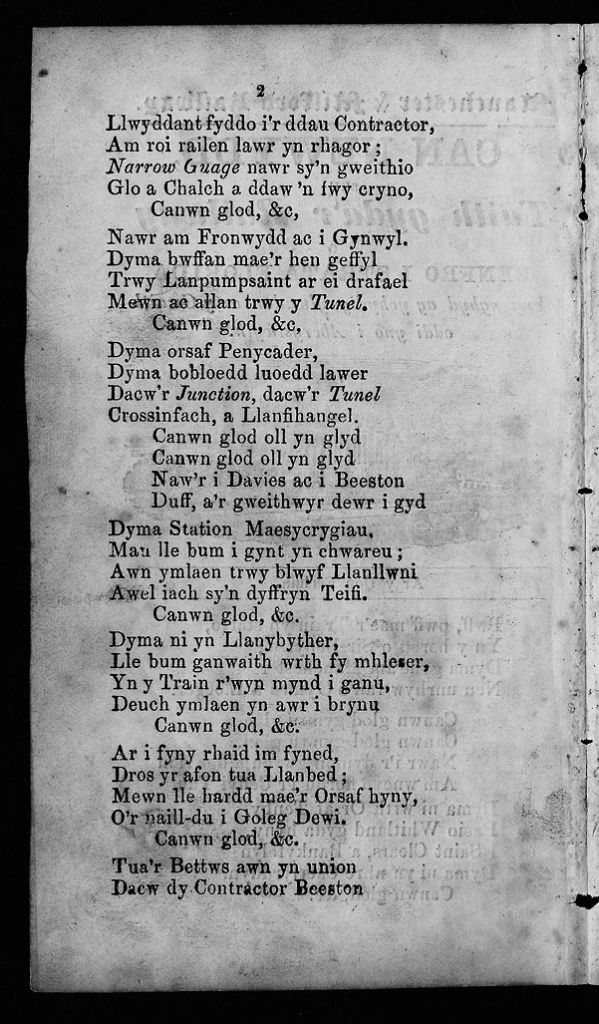 2
Llwyddant fyddo i'r ddau Contractor,
Am roi railen lawr yn rhagor;
Narrow Guage nawr sy'n gweithio
Glo a Chalch a ddaw 'n fwy cryno,
Canwn glod, &c,
Nawr am Fronwydd ac i Gynwyl.
Dyma bwffan mae'r hen geffyl
Trwy Lanpumpsaint ar ei drafael
Mewn ac allan trwy y Tunel.
Canwn glod, &c,
Dyma orsaf Penycader,
Dyma bobloedd luoedd lawer
Dacw'r Junction, dacw'r Tunel
Crossinfach, a Llanfihangel.
Canwn glod oll yn glyd
Canwn glod oll yn glyd
Naw'r i Davies ac i Beeston
Duff, a'r gweithwyr dewr i gyd
Dyma Station Maesycrygiau,
Man lle bum i gynt yn chwareu;
Awn ymlaen trwy blwyf Llanllwni
Awel iach sy'n dyffryn Teifi.
Canwn glod, &c.
Dyma ni yn Llanybyther,
Lle bum ganwaith wrth fy mhleser,
Yn y Train r'wyn mynd i ganu,
Deuch ymlaen yn awr i brynu
Canwn glod, &c.
Ar i fyny rhaid im fyned,
Dros yr afon tua Llanbed;
Mewn lle hardd mae'r Orsaf hyny,
O'r naill-du i Goleg Dewi.
Canwn glod, &c.
Tua'r Bettws awn yn union
Dacw dy Contractor Beeston